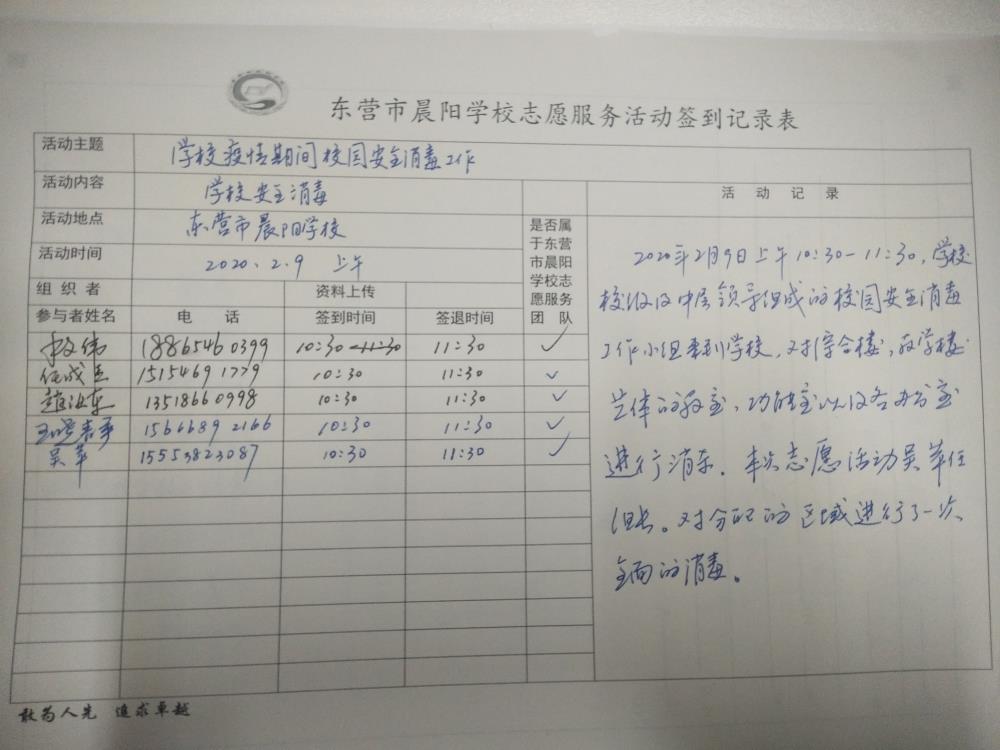 东营市晨阳学校志愿服务活动签到记录表
活动主题 学校疫情期间校园安全消毒工作
活动内容 学校安全消毒
活动地点 东营市晨阳学校
活动时间 2020.2.9 上午
组织者 资料上传
参与者姓名 电话 签到时间 签退时间 是否属于东营市晨阳学校志愿服务团队
伟 18865460399 10:30 11:30 ✓
任成 15154691779 10:30 11:30 ✓
赵 13518660998 10:30 11:30 ✓
王 15666892166 10:30 11:30 ✓
吴苹 15553823087 10:30 11:30 ✓
活动记录
2020年2月9日上午10:30-11:30,学校
校级及中层领导组成的校园安全消毒
工作小组来到学校,对综合楼,教学楼
总体的教室,功能室以及各办公室
进行消杀.本次志愿活动吴苹任
组长。对分配的区域进行了一次
全面的消毒。
敢为人先 追求卓越